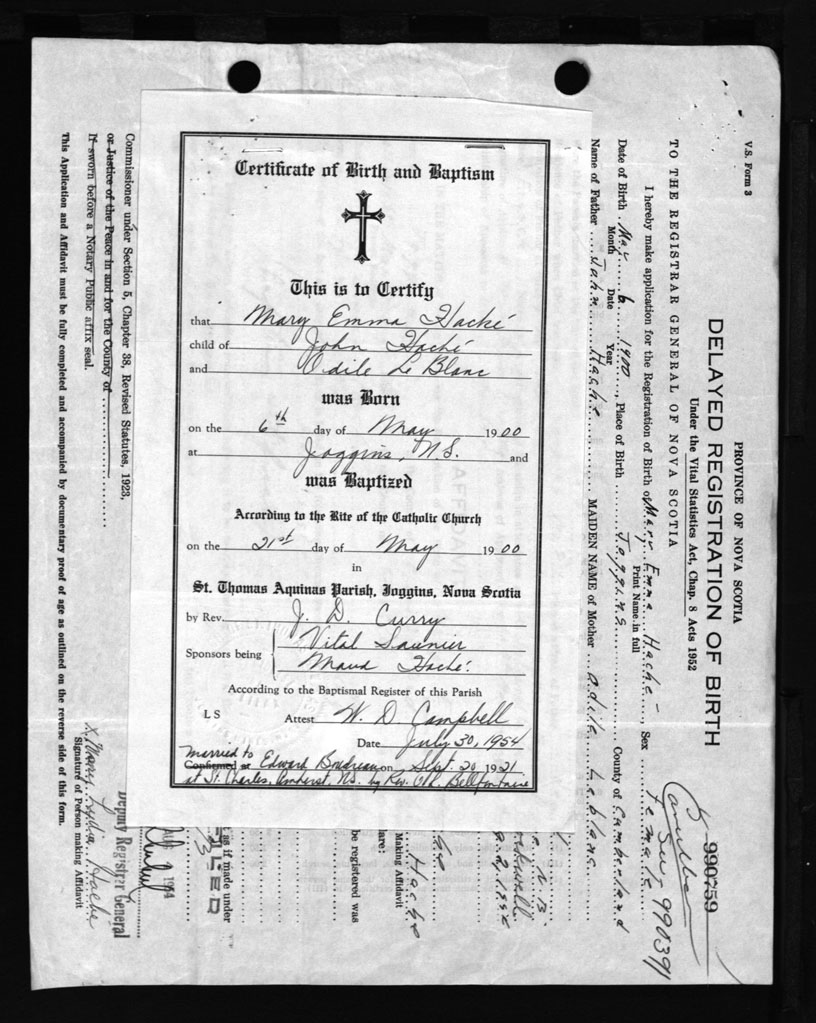 Certificate of Birth and Baptism
This is to Certify
that Mary Emma Haché
child of John Haché
and Odile Le Blanc
was Born
on the 6th day of May 1900
at Joggins, N.S. and
was Baptized
According to the Rite of the Catholic Church
on the 21st day of May 1900
in
St. Thomas Aquinas Parish, Joggins, Nova Scotia
by Rev. J. D. Curry
Sponsors being Vital Saunier
Maud Haché
According to the Baptismal Register of this Parish
L S Attest W. D. Campbell
Date July 30, 1954
married to
Confirmed at Edward Boudreau on Sept. 20 1921
at St. Charles, Amherst, NS. by Rev. Bellfontaine
V.S. Form 3
PROVINCE OF NOVA SCOTIA
DELAYED REGISTRATION OF BIRTH
990759
Under the Vital Statistics Act, Chap. 8 Acts 1952
See 990391
TO THE REGISTRAR GENERAL OF NOVA SCOTIA
I hereby make application for the Registration of Birth of Mary Emma Hache, Sex female
Print Name in full
Date of Birth May 6 1900, Place of Birth Joggins County of Cumberland
Month Date Year
Name of Father John Hache MAIDEN NAME of Mother Adile Leblanc
Hache
Making Affidavit
are:
be registered was
as if made under
FILED
AUG 1954
Deputy Registrar General
Commissioner under Section 5, Chapter 38, Revised Statutes, 1923,
or Justice of the Peace in and for the County of
If sworn before a Notary Public affix seal.
X Mary Lydia Hache
Signature of Person making Affidavit
This Application and Affidavit must be fully completed and accompanied by documentary proof of age as outlined on the reverse side of this form.